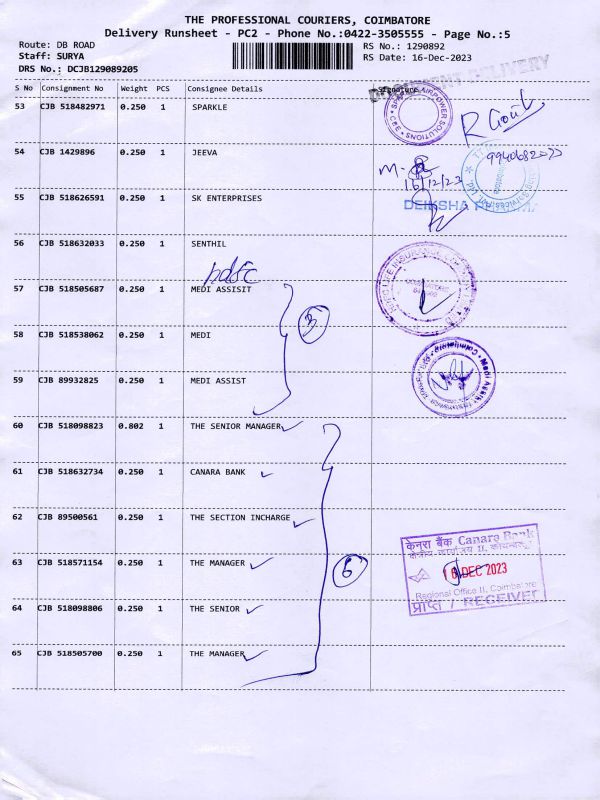 THE PROFESSIONAL COURIERS, COIMBATORE
Delivery Runsheet - PC2 - Phone No.:0422-3505555 - Page No.:5
Route: DB ROAD
RS No.: 1290892
Staff: SURYA
RS Date: 16-Dec-2023
DRS No.: DCJB129089205
DELIVERY
S No Consignment No Weight PCS Consignee Details Signature
53 CJB 518482971 0.250 1 SPARKLE
AIRPOWER SOLUTIONS
54 CJB 1429896 0.250 1 JEEVA
16/12/23
55 CJB 518626591 0.250 1 SK ENTERPRISES
DEIKSHA
56 CJB 518632033 0.250 1 SENTHIL
hdfc
LIFE INSURANCE
57 CJB 518505687 0.250 1 MEDI ASSISIT
3
58 CJB 518538062 0.250 1 MEDI
Medi Assist
59 CJB 89932825 0.250 1 MEDI ASSIST
60 CJB 518098823 0.802 1 THE SENIOR MANAGER
61 CJB 518632734 0.250 1 CANARA BANK
62 CJB 89500561 0.250 1 THE SECTION INCHARGE
केनरा बैंक Canara Bank
क्षेत्रीय कार्यालय II,
63 CJB 518571154 0.250 1 THE MANAGER
6
DEC 2023
Regional Office II, Coimbatore
प्राप्त / RECEIVED
64 CJB 518098806 0.250 1 THE SENIOR
65 CJB 518505700 0.250 1 THE MANAGER